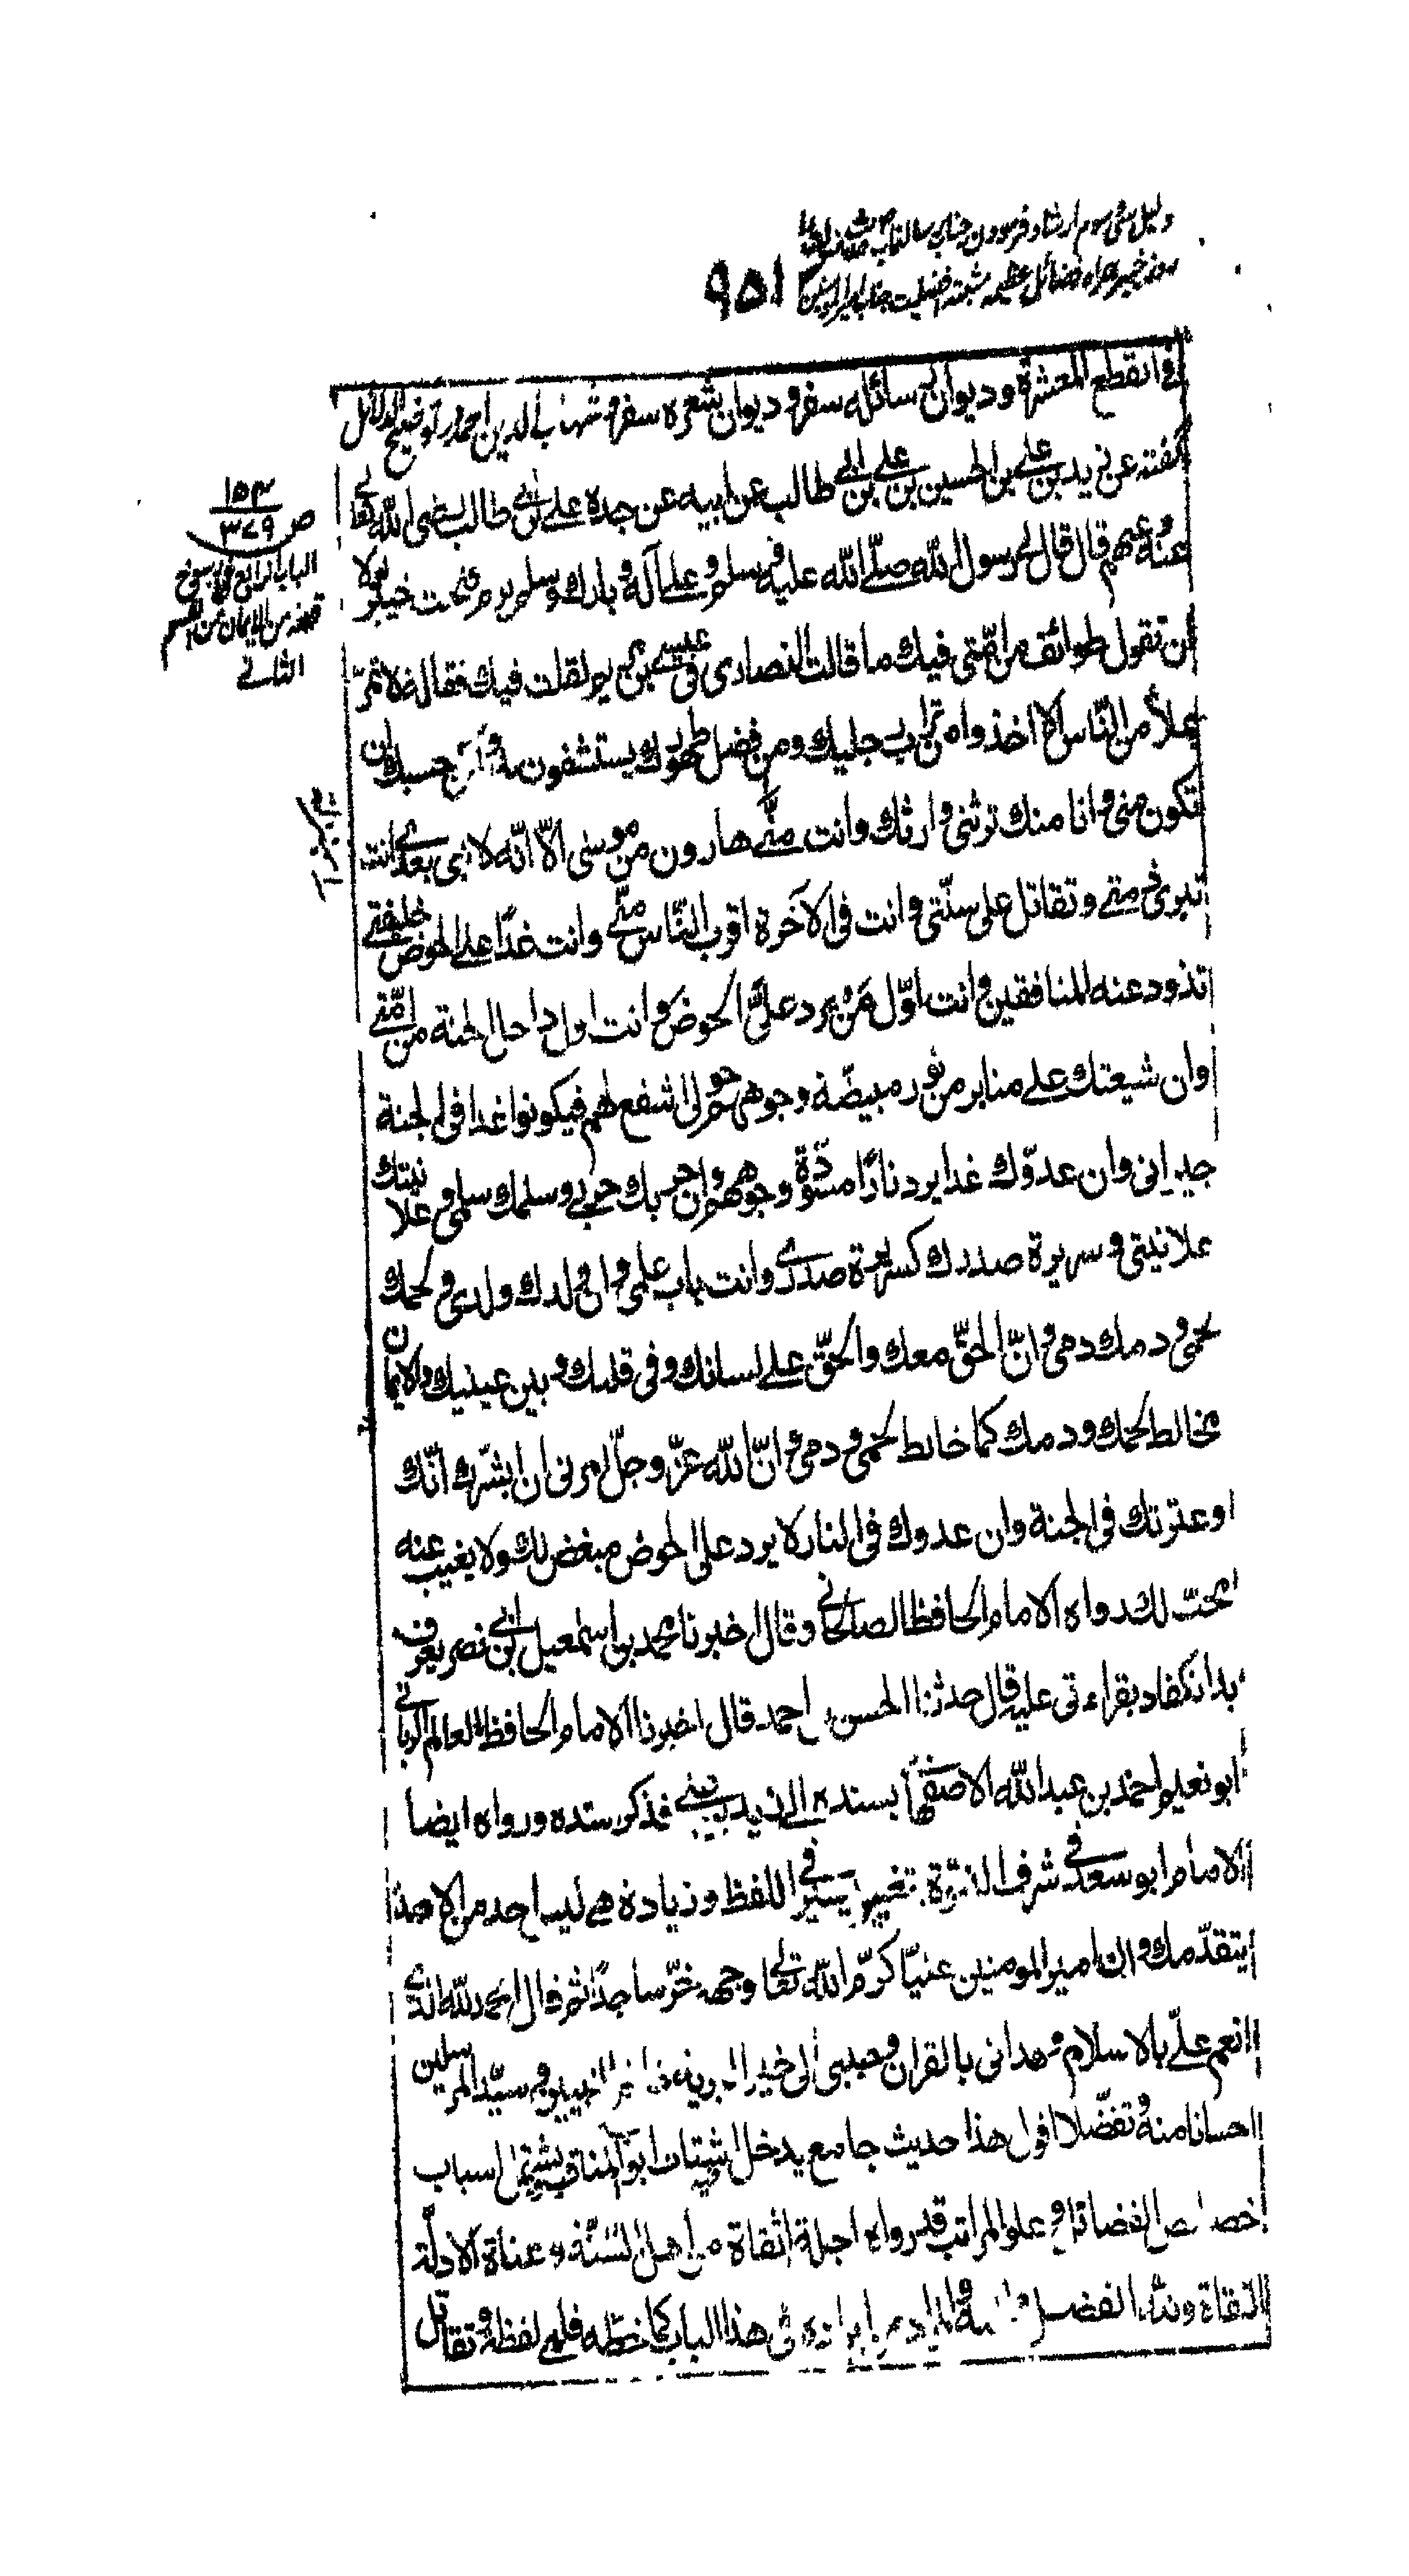 دليل سی سوم ارشاد فرمودن جناب رسالتمآب
روز خيبر فضائل عظيمه مثبته افضليت جناب امير المؤمنين
٩٥١
فانقطع المعشرة وديوان رسائله سفر وديوان شعره سفر وشهاب الدين احمد در توضيح الدلائل
گفته عن زيد بن علی بن الحسين بن علی بن ابی طالب عن ابيه عن جده علی بن ابی طالب رضی الله تعالی
عنه وعنهم قال قال لی رسول الله صلّی الله عليه وعلی آله وبارك وسلم يوم فتحت خيبر لولا
ان تقول طوائف من امّتی فيك ما قالت النصاری فی عيسی بن مريم لقلت فيك مقالا لا تمرّ
بملأ من النّاس الا اخذوا من تراب رجليك ومن فضل طهورك يستشفون به ولكن حسبك ان
تكون منی وانا منك ترثنی وارثك وانت منّی هارون من موسی الّا انّه لا نبی بعدی انت
تبری ذمتی وتقاتل علی سنّتی وانت فی الآخرة اقرب النّاس منّی وانت غدًا علی الحوض خليفتی
تذود عنه المنافقين وانت اوّل من يرد علیّ الحوض وانت اول داخل الجنة من امّتی
وان شيعتك علی منابر من نور مبيضّة وجوههم حولی اشفع لهم فيكونوا غدا فی الجنة
جيرانی وان عدوّك غدا يرد نارًا مسودّة وجوههم وان حربك حربی وسلمك سلمی وعلانيتك
علانيتی وسريرة صدرك كسريرة صدری وانت باب علمی وان ولدك ولدی ولحمك
لحمی ودمك دمی وانّ الحقّ معك والحقّ علی لسانك وفی قلبك وبين عينيك والايمان
مخالط لحمك ودمك كما خالط لحمی ودمی وانّ الله عزّ وجلّ امرنی ان ابشّرك انّك
وعترتك فی الجنة وان عدوك فی النار لا يرد علی الحوض مبغض لك ولا يغيب عنه
محبّ لك رواه الامام الحافظ الصالحانی وقال اخبرنا محمد بن اسمعيل بن ابی نصر يعرف
بدانكفاد بقراءتی عليه قال حدثنا الحسن احمد قال اخبرنا الامام الحافظ العالم الربانی
ابو نعيم احمد بن عبد الله الاصفهانی بسنده الی زيد بن علی فذكر سنده ورواه ايضا
الامام ابو سعد فی شرف النبوّة بتغيير يسير فی اللفظ وزيادة هی ليس احد من الامة
يتقدّمك وان امير المومنين عليّا كرّم الله تعالی وجهه خرّ ساجدًا ثم قال الحمد لله الذی
انعم علیّ بالاسلام وهدانی بالقران وحببنی الی خير البرية خاتم النبيين وسيّد المرسلين
احسانا منه وتفضّلا اقول هذا حديث جامع يدخل اشتات ابواب المناقب ويشتمل اسباب
خصائص الفضائل وعلو المراتب قد رواه اجلة الثقاة من اهل السنّة وعناة الادلّة
الثقاة ولله الفضل والمراد من ايراده فی هذا الباب كما خطّه قلمی لفظه وتقاتل
ص ١٥٣
٣٧٩
الباب الرابع
من القسم
الثانی